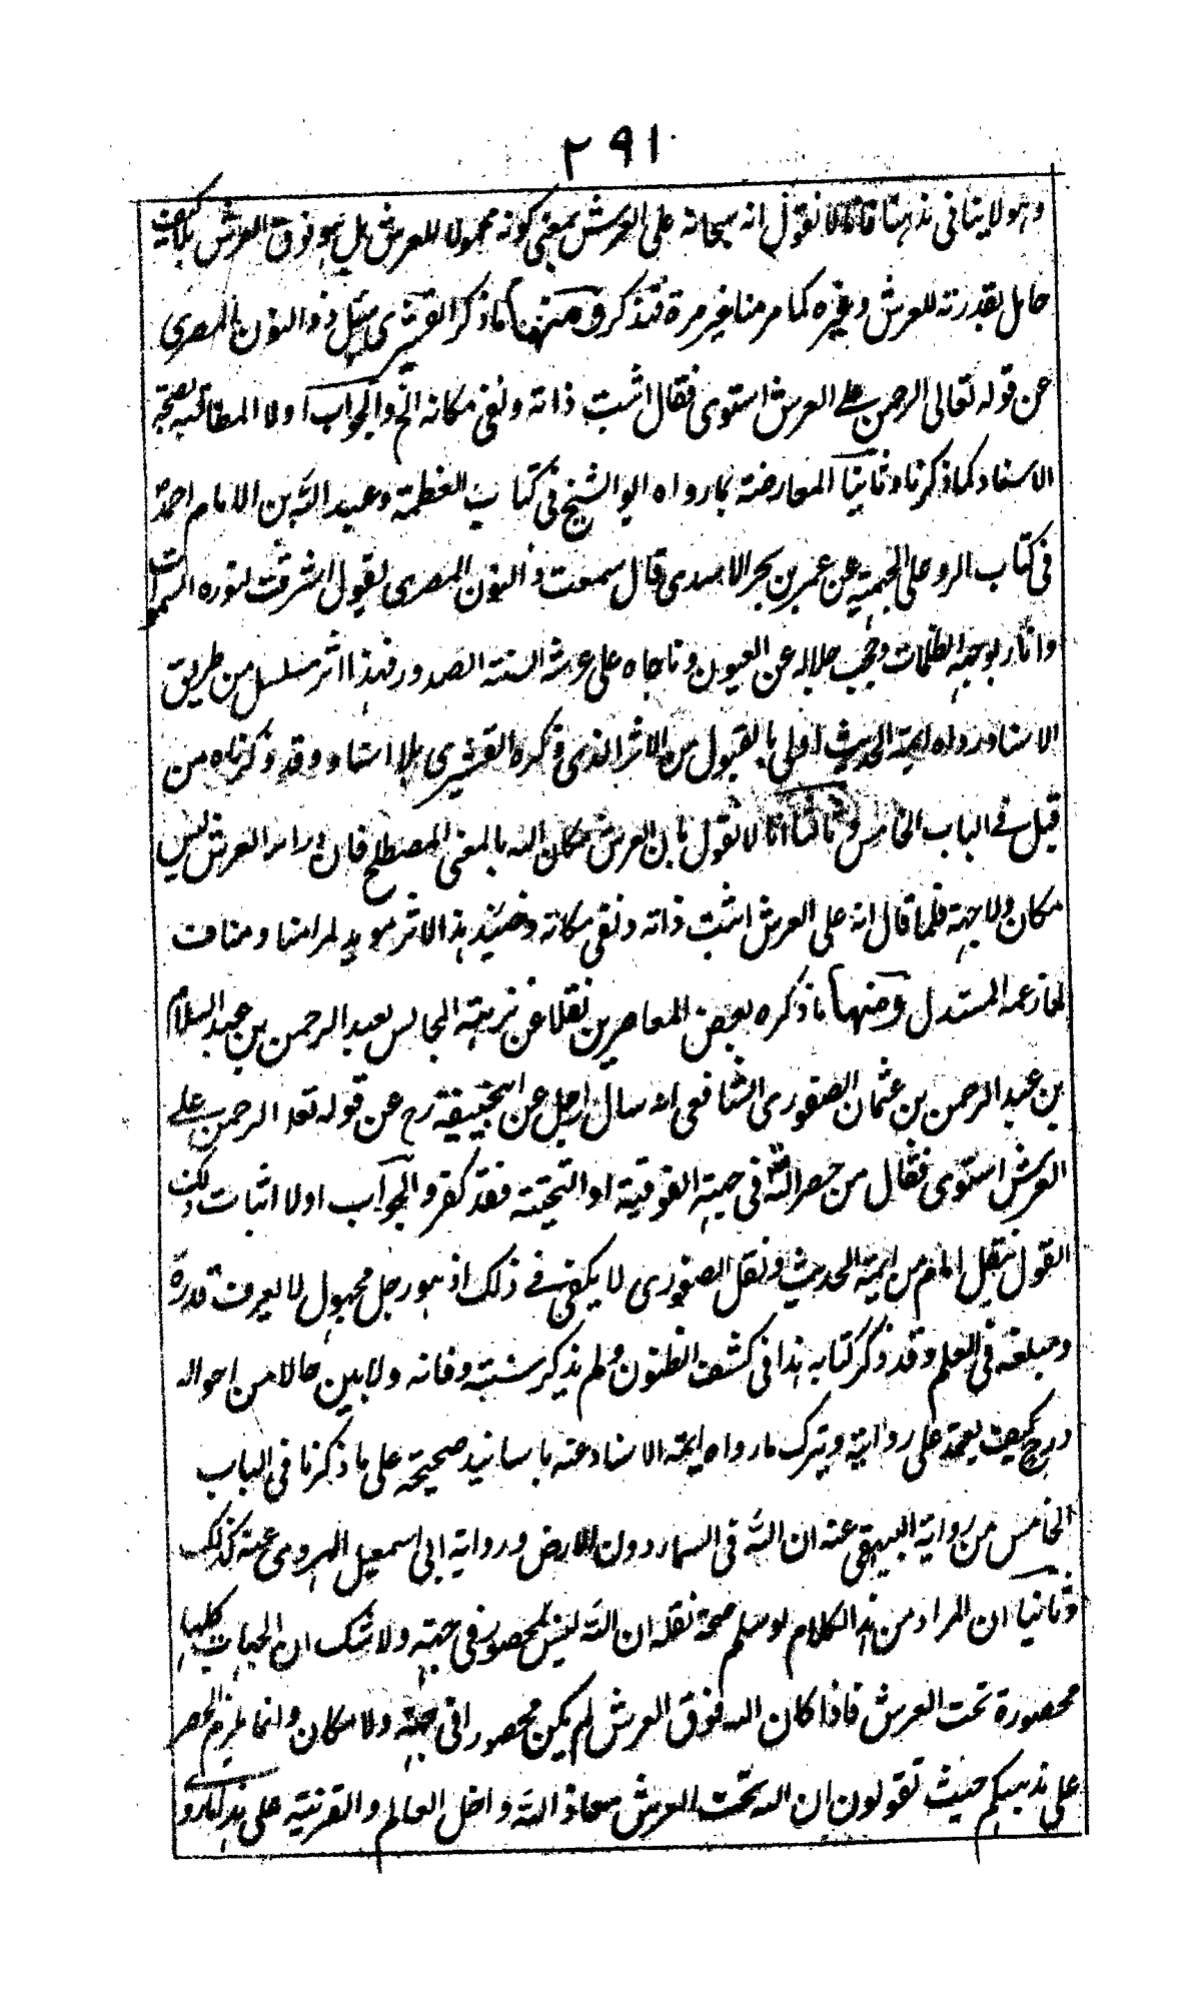 ٢٩١
وهو لا ينافى مذهبنا فانا لا نقول انه سبحانه على العرش بمعنى كونه محمولا للعرش بل هو فوق العرش بلا كيف
حامل بقدرته للعرش وغيره كما مر منا غير مرة فتذكر ومنها ما ذكر القشيرى سئل ذو النون المصرى
عن قوله تعالى الرحمن على العرش استوى فقال اثبت ذاته ونفى مكانه الخ والجواب اولا المطالبة بصحة
الاسناد كما ذكرنا وثانيا المعارضة بما رواه ابو الشيخ فى كتاب العظمة وعبد الله بن الامام احمد
فى كتاب الرد على الجهمية عن عمر بن بحر الاسدى قال سمعت ذا النون المصرى يقول اشرقت لنوره السموات
وانار بوجهه الظلمات وحجب جلاله عن العيون وناجاه على عرشه السنة الصدور فهذا اثر مسلسل من طريق
الاسناد رواه ايمة الحديث اولى بالقبول من الاثر الذى ذكره القشيرى بلا اسناد وقد ذكرناه من
قبل فى الباب الخامس وثالثا انا لا نقول بان العرش مكان الله بالمعنى المصطلح فان وراء العرش ليس
مكان ولا جهة فلما قال انه على العرش اثبت ذاته ونفى مكانه وحينئذ هذا الاثر مويد لمرامنا ومناف
لما زعمه المستدل ومنها ما ذكره بعض المعاصرين نقلا عن نزهة المجالس لعبد الرحمن بن عبد السلام
بن عبد الرحمن بن عثمان الصفورى الشافعى انه سال رجل عن ابيحنيفة رح عن قوله تعه الرحمن على
العرش استوى فقال من حصر الله فى جهة الفوقية او التحتية فقد كفر والجواب اولا اثبات ذلك
القول بنقل امام من ايمة الحديث ونقل الصفورى لا يكفى فى ذلك اذ هو رجل مجهول لا يعرف قدره
ومبلغه فى العلم وقد ذكر كتابه هذا فى كشف الظنون ولم يذكر سنة وفاته ولا بين حالا من احواله
درج كيف يعتمد على روايته ويترك ما رواه ايمة الاسناد عنه باسانيد صحيحة على ما ذكرنا فى الباب
الخامس من رواية البيهقى عنه ان الله فى السماء دون الارض ورواية ابى اسمعيل الهروى عنه كذلك
وثانيا ان المراد من هذا الكلام لو سلم صحة نقله ان الله ليس بمحصور فى جهة ولا شك ان الجهات كلها
محصورة تحت العرش فاذا كان الله فوق العرش لم يكن محصورا فى جهة ولا مكان وانما يلزم الحصر
على مذهبكم حيث تقولون ان الله تحت العرش معاذ الله داخل العالم والقرنية على هذا